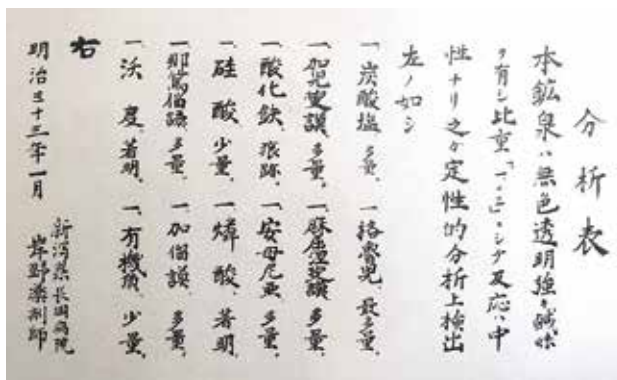 分析表
本鉱泉ハ無色透明強キ鹹味
ヲ有シ比重ニシテ反応ハ中
性ナリ之カ定性的分析上検出
左ノ如シ
一 炭酸塩 多量、 一 格魯児、最多量、
一、加児叟謨、多量、 一、麻屈涅叟謨 多量、
一 酸化鉄、痕跡、 一、安母尼亜、多量、
一 硅酸 少量、 一 燐酸、著明、
一 那篤僧謨、多量、 一 加僧謨、多量、
一 沃度、著明、 一、有機質、少量、
右
明治三十三年一月
新泻県長岡病院
岸野薬剤師